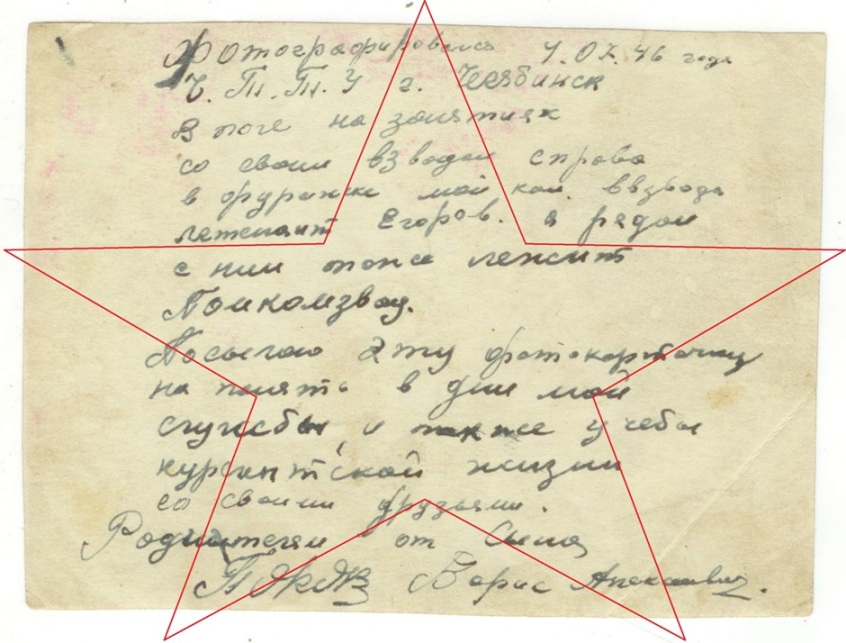 Фотографировались 7.07.46 года
Ч.Т.Т.У г. Челябинск
в поле на занятиях
со своим взводом справа
в фуражке мой ком. ввзвода
лежит Егоров. а рядом
с ним тоже лежит
Помкомзвод.
Посылаю эту фотокарточку
на память в дни мой
службы, и также учебы
курсантской жизни
со своими друзьями.
Родителям от Сына
Борис